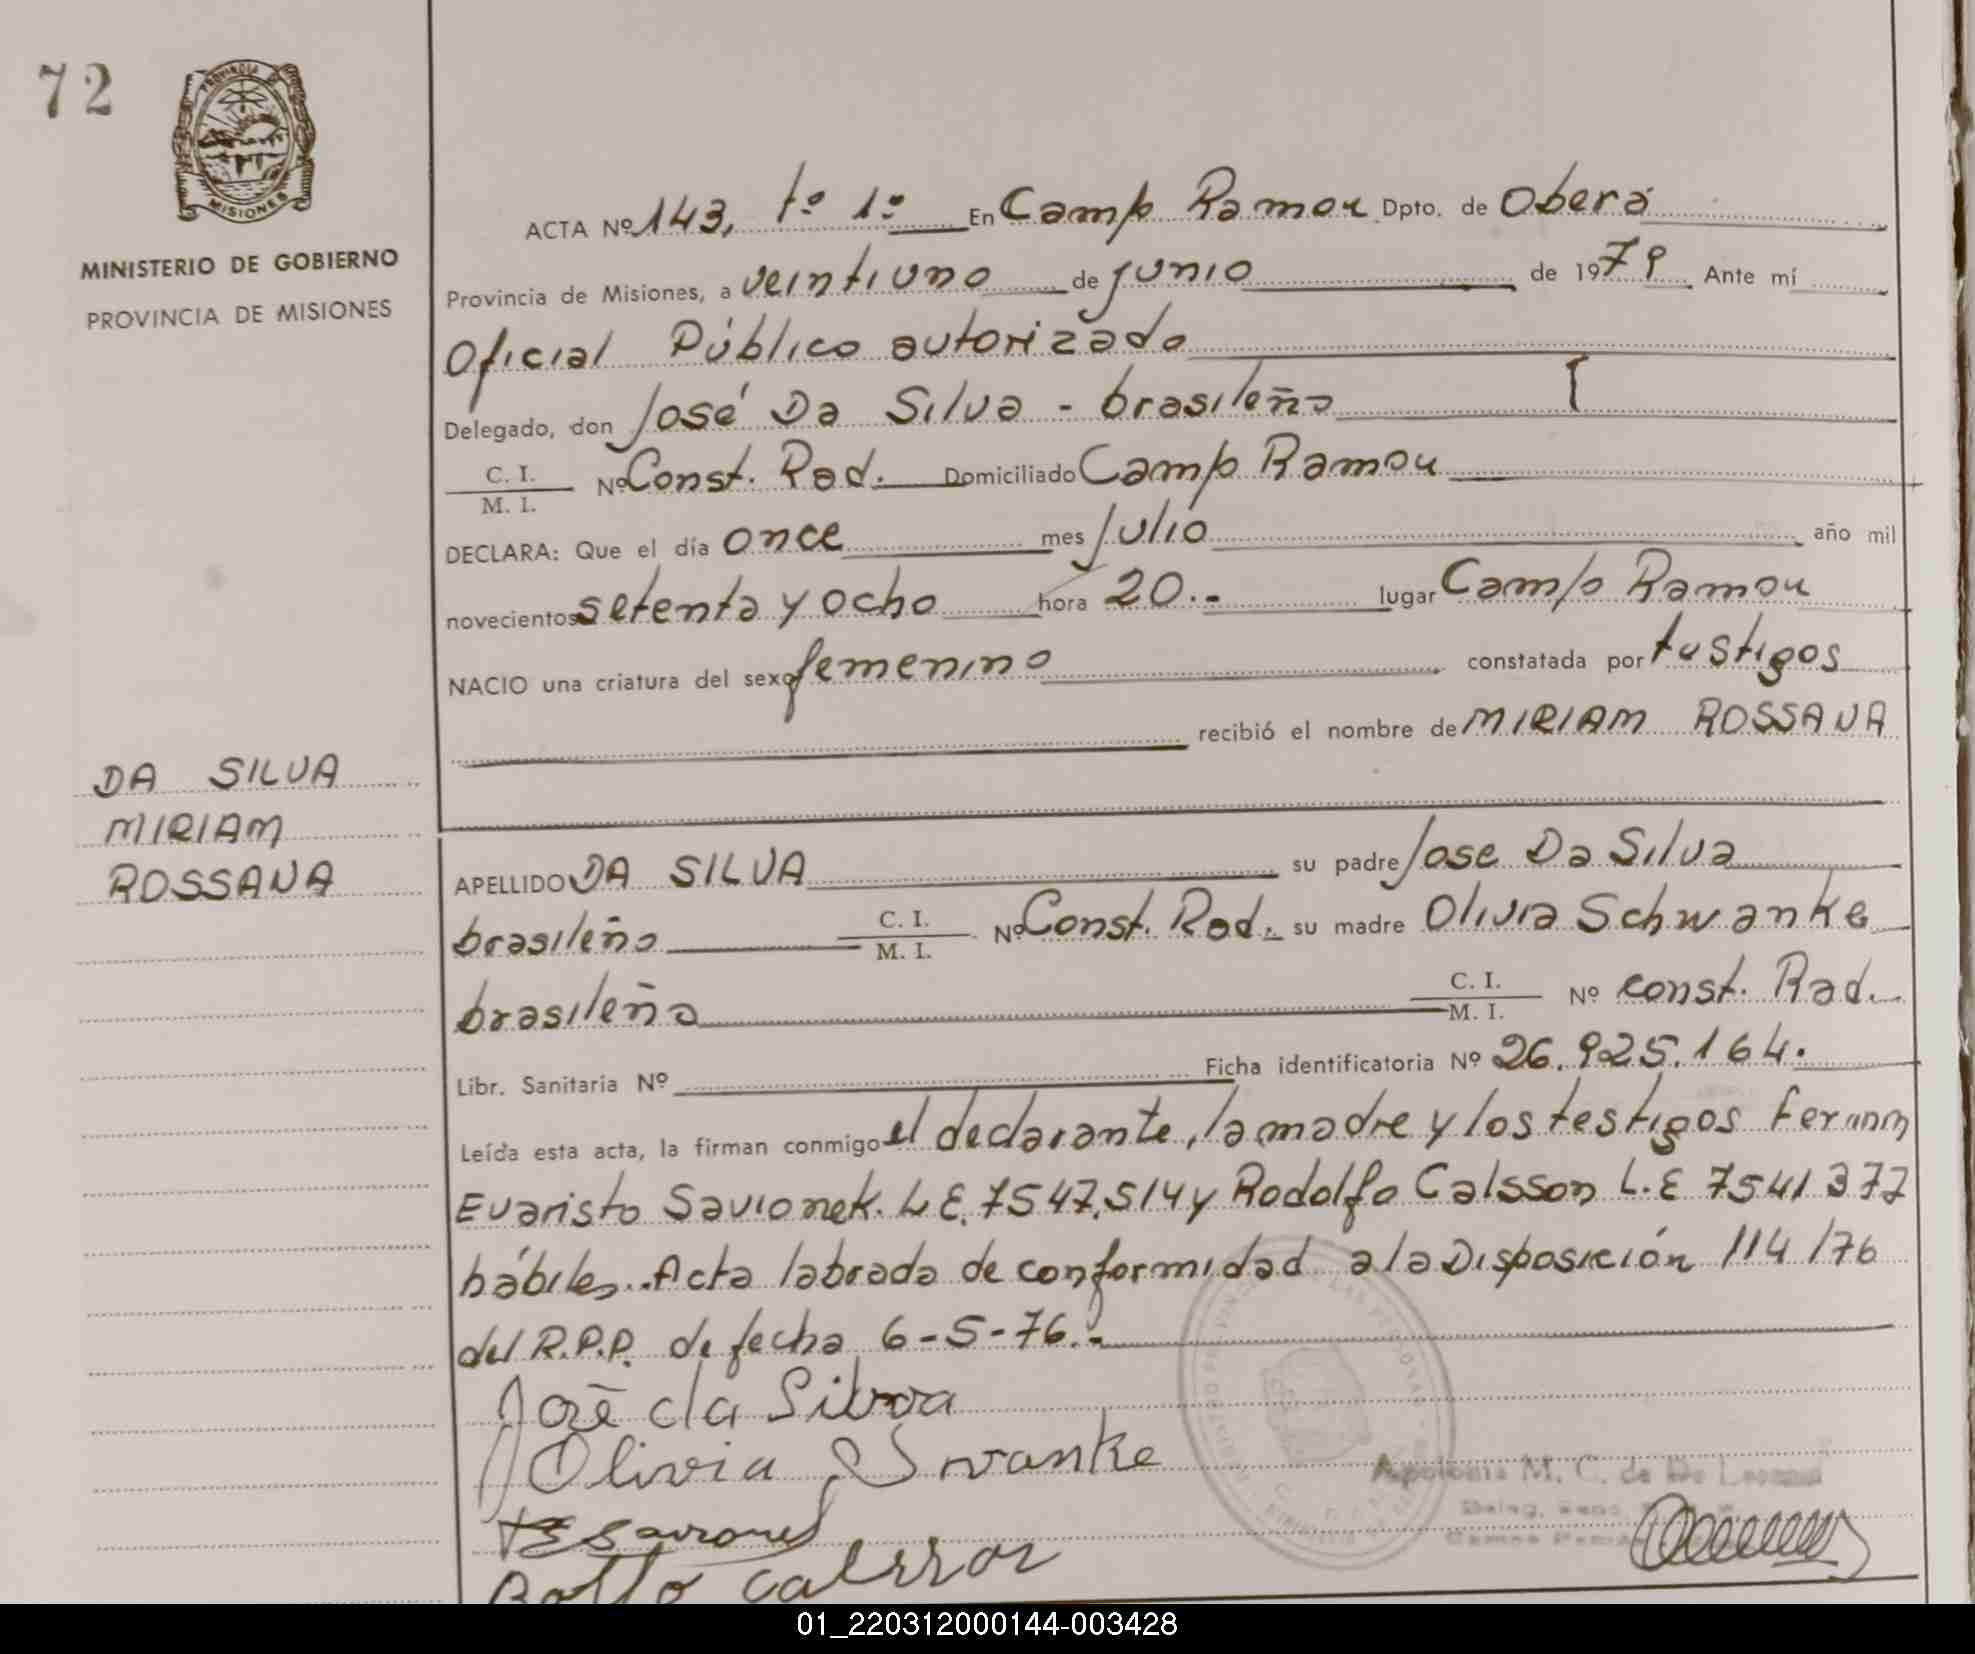 72
PROVINCIA DE
MISIONES
MINISTERIO DE GOBIERNO
PROVINCIA DE MISIONES
ACTA Nº 143, tº 1º En Campo Ramon Dpto. de Oberá
Provincia de Misiones, a veintiuno de junio de 1979 Ante mí
Oficial Público autorizado
Delegado, don José Da Silva - brasileño
C. I.
M. I. Nº Const. Rad. Domiciliado Campo Ramon
DECLARA: Que el día once mes Julio año mil
novecientos setenta y ocho hora 20.- lugar Campo Ramon
NACIO una criatura del sexo femenino constatada por tustigos
recibió el nombre de MIRIAM ROSSANA
DA SILVA
MIRIAM
ROSSANA
APELLIDO DA SILVA su padre Jose Da Silva
brasileño C. I.
M. I. Nº Const. Rad. su madre Olivia Schwanke
brasileña C. I.
M. I. Nº const. Rad.
Libr. Sanitaria Nº Ficha identificatoria Nº 26.925.164.
Leída esta acta, la firman conmigo el declarante, la madre y los testigos
Evaristo Savionek. L.E. 7547.514 y Rodolfo Calsson L.E 7541377
hábiles. Acta labrada de conformidad a la Disposición 114/76
del R.P.P. de fecha 6-5-76.-
José da Silva
Olivia Swanke
Apolonia M. C. de De
01_220312000144-003428